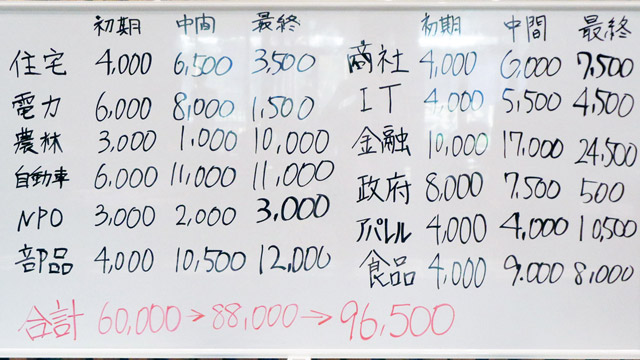 初期 中間 最終
住宅 4,000 6,500 3,500
電力 6,000 8,000 1,500
農林 3,000 1,000 10,000
自動車 6,000 11,000 11,000
NPO 3,000 2,000 3,000
部品 4,000 10,500 12,000
初期 中間 最終
商社 4,000 6,000 7,500
IT 4,000 5,500 4,500
金融 10,000 17,000 24,500
政府 8,000 7,500 500
アパレル 4,000 4,000 10,500
食品 4,000 9,000 8,000
合計 60,000→88,000→96,500